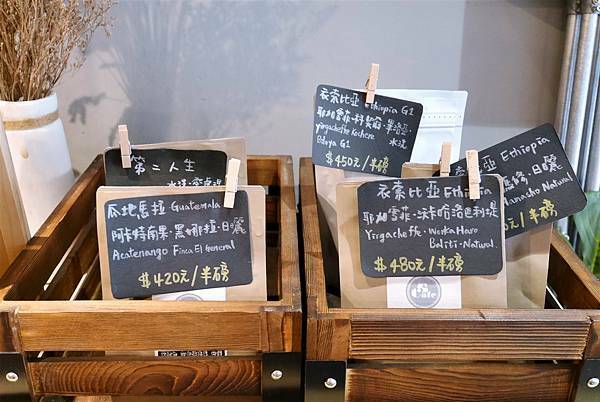 第二人生
瓜地馬拉 Guatemala
阿卡特南果·黑娜拉·日曬
Acatenango Finca El General
$420元/半磅
衣索比亞 Ethiopia G1
耶加雪菲·
yirgacheffe Kochere
G1
水洗
$450元/半磅
衣索比亞 Ethiopia
耶加雪菲·沃卡哈洛 利堤
Yirgacheffe·Worka Haro
Beliti·Natural.
$480元/半磅
Ethiopia
日曬
Natural
元/半磅
Cafe